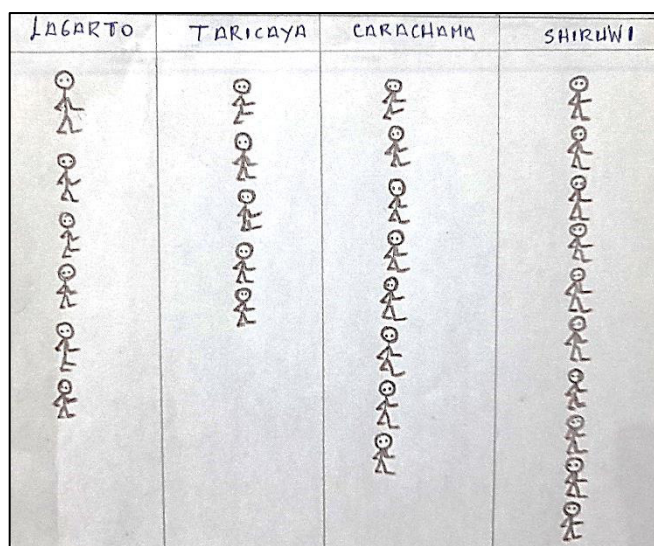 LAGARTO TARICAYA CARACHAMA SHIRUWI